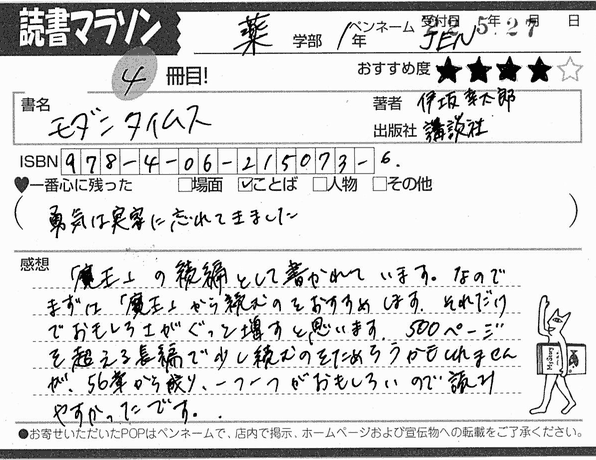 読書マラソン
薬 学部 1年 ペンネーム JEN 受付日 5年 27月 日
4 冊目!
おすすめ度 ★★★★☆
書名 モダンタイムス
著者 伊坂幸太郎
出版社 講談社
ISBN 978-4-06-215073-6.
♥一番心に残った □場面 ☑ことば □人物 □その他
(勇気は実家に忘れてきました)
感想
「魔王」の続編として書かれています。なので
まずは「魔王」から読むのをおすすめします。それだけ
でおもしろさがぐっと増すと思います。500ページ
を超える長編で少し読むのをためらうかもしれません
が、56章から成り、一つ一つがおもしろいので読み
やすかったです。
●お寄せいただいたPOPはペンネームで、店内で掲示、ホームページおよび宣伝物への転載をご了承ください。